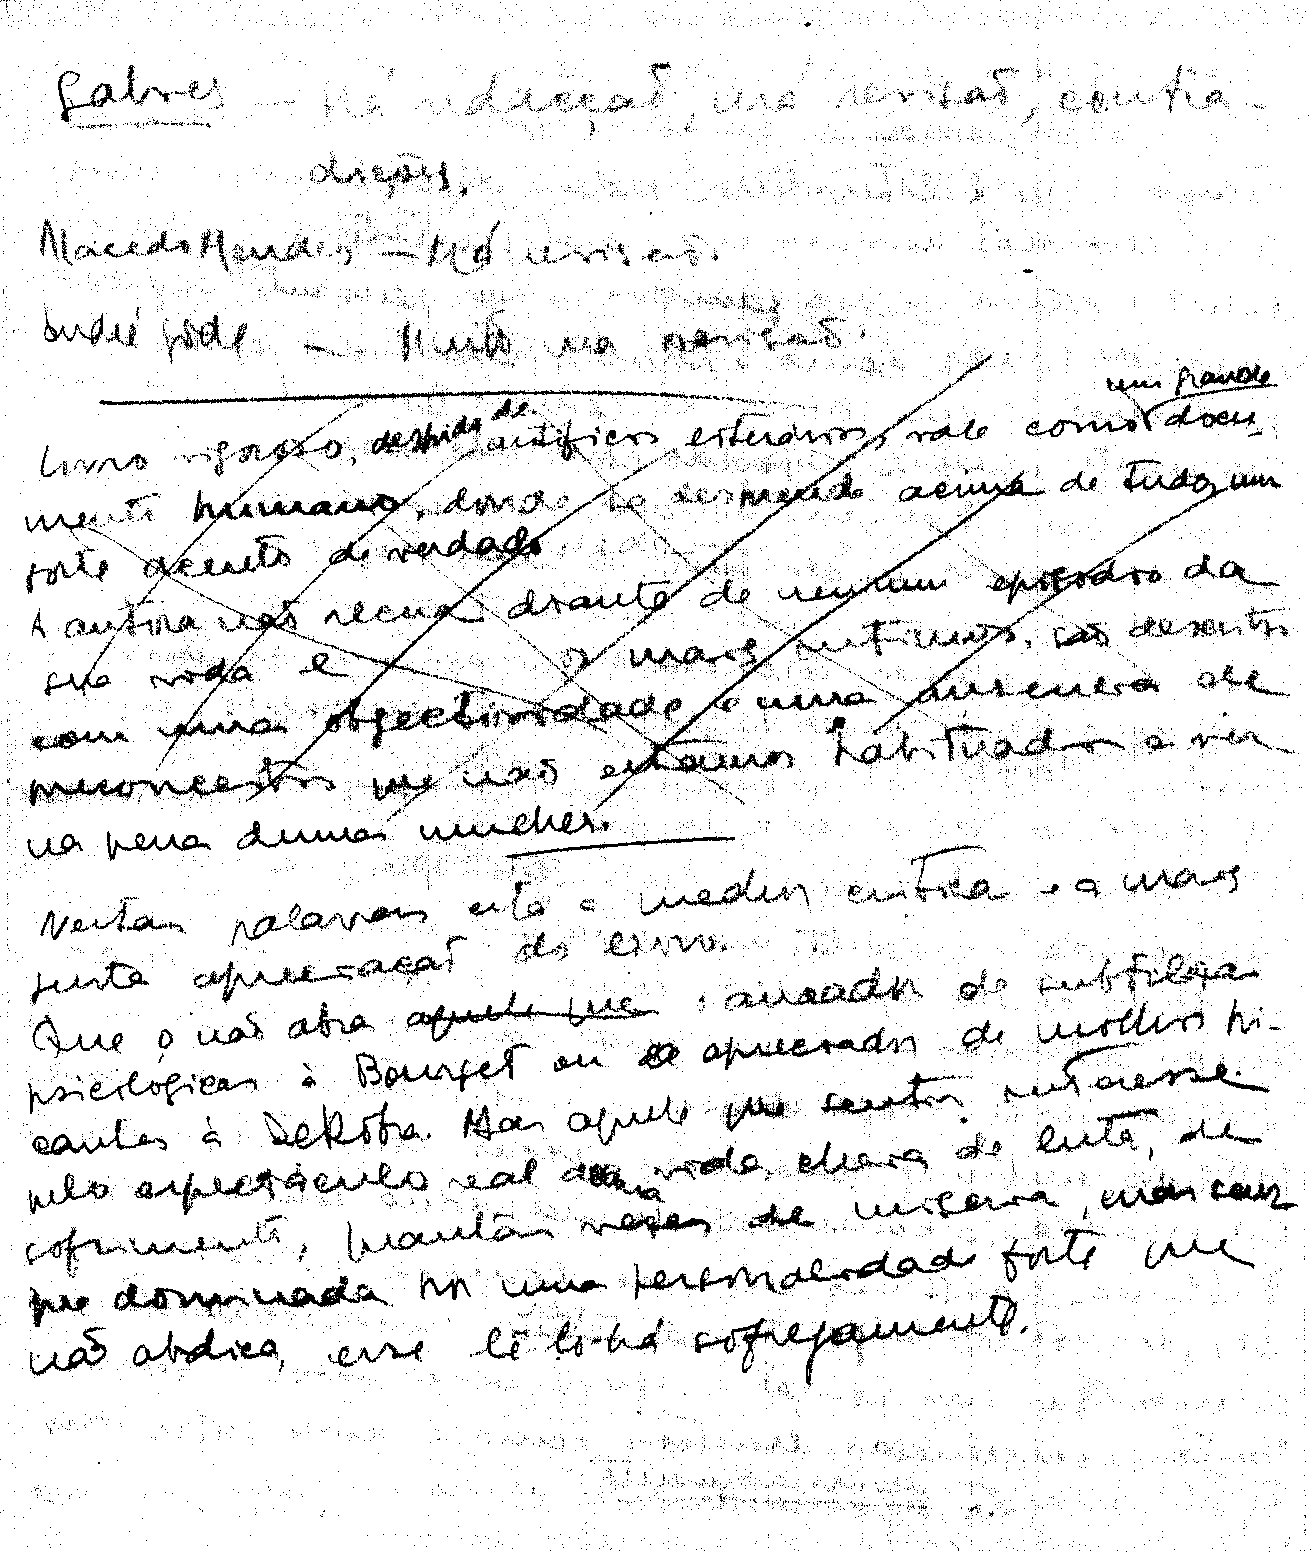 Gabriel — Má redacção, má revisão, contra-
dições.
Macedo Mendes — Má revisão.
André Gide — Muito má revisão.
um grande
Livro vigoroso, despido de artifícios literários, vale como docu-
mento humano, donde se desprende acima de tudo, um
forte acento de verdade.
A autora não recua diante de nenhum episódio da
sua vida e os mais íntimos, são descritos
com uma objectividade e uma ausencia de
preconceitos que não estamos habituados a ver
na pena duma mulher.
Nestas palavras está a melhor critica e a mais
justa apreciação do livro.
Que o não abra aquele que, amador de subtilezas
psicológicas à Bourget ou apreciador de molhos pi-
cantes à Dekobra. Mas aquele que sentir interesse
pelo espectáculo real duma vida cheia de luta, de
sofrimento, quantas vezes de miseria, mas sem-
pre dominada por uma personalidade forte que
não abdica, esse lê-lo-há sofregamente.